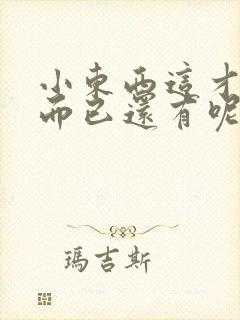 小東西這才
而已還有呢
瑪吉斯